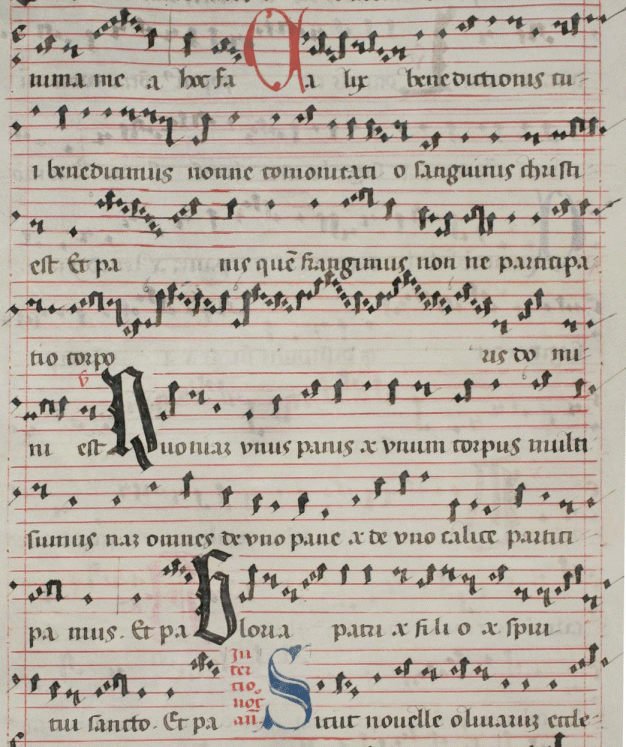 nima me a hoc fa Ca lix benedictionis cu
i benedicimus nonne comonicati o sanguinis christi
est Et pa nis quē frangimus non ne participa
tio corpo ris do mi
ni est
v Quoniaz vnus panis ⁊ vnum corpus multi
sumus naz omnes de vno pane ⁊ de vno calice partici
pa mus. Et pa Gloria patri ⁊ fili o ⁊ spiri
tui sancto. Et pa
In
ter
tio.
noc
añ.
Sicut nouelle oliuaruz eccle